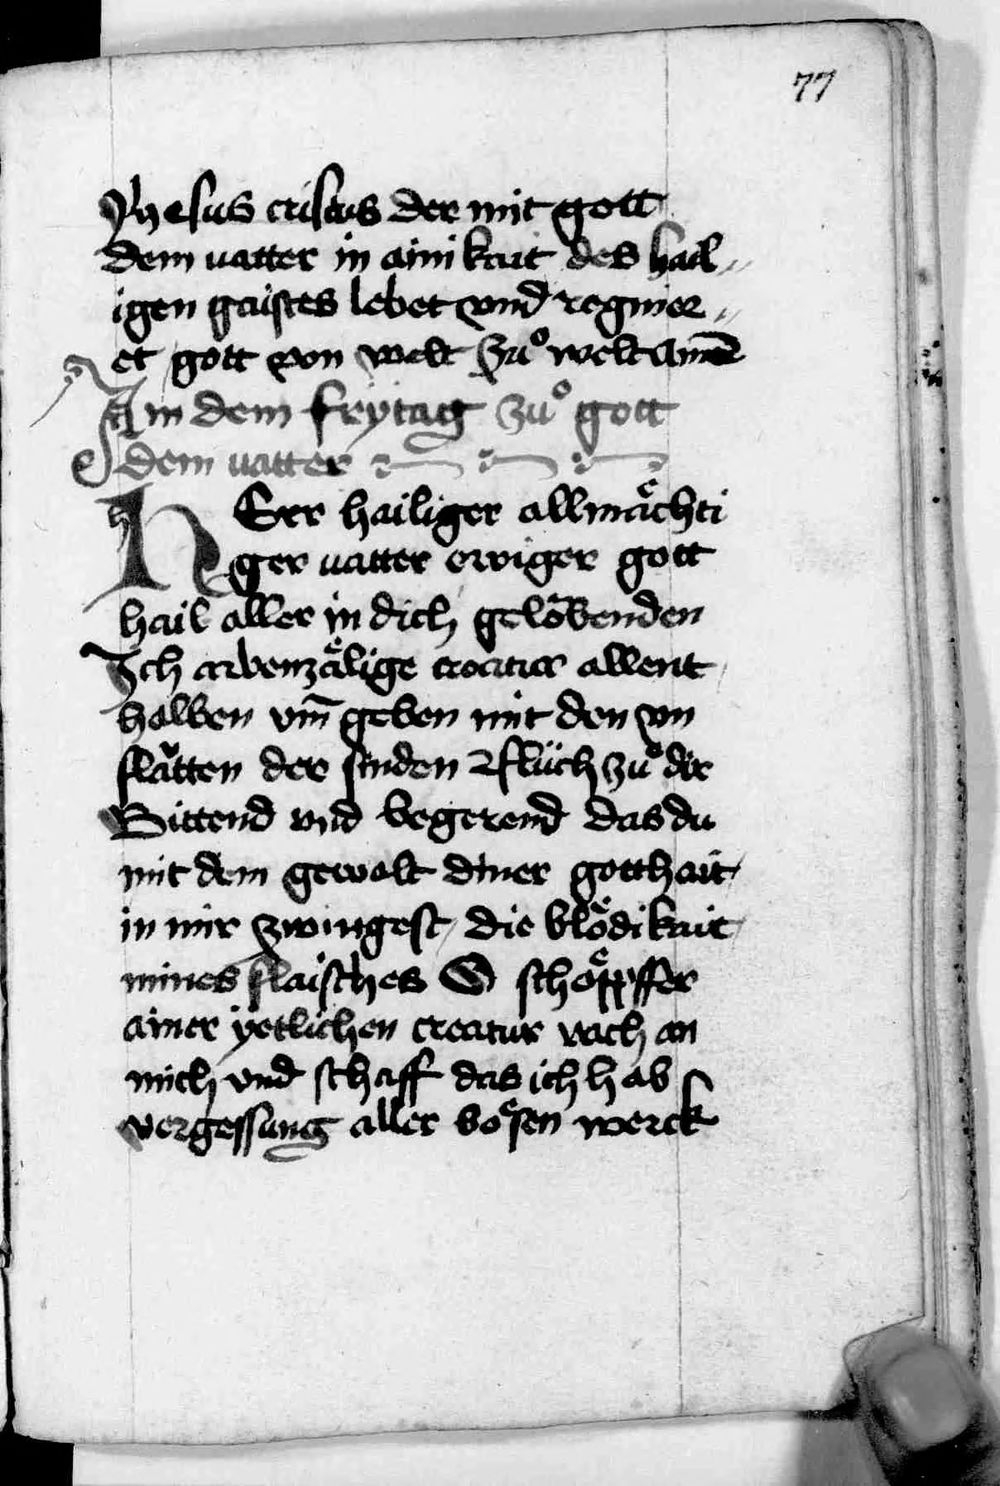 77
Jhesus cristus der mit gott
dem uatter in ainikait des hail„
igen gaistes lebet vnd regnier„
et gott von welt zuͦ welt Amē
An dem frÿtag zuͦ gott
dem uatter
h HErr hailiger allmaͤchti
ger uatter ewiger gott
hail aller in dich gelōbenden
Ich arbenzaͤlige creatur allent
halben vm̄ geben mit den vn
flaͤtten der sinden flüch zuͦ dir
Bittend vnd begerend das du
mit dem gewalt diner gotthait
in mir zwingest die bloͤdikait
mines flaisches O schoͤpffer
ainer ÿetlichen creatur vach an
mich vnd schaff das ich hab
vergessung aller boͤsen werck